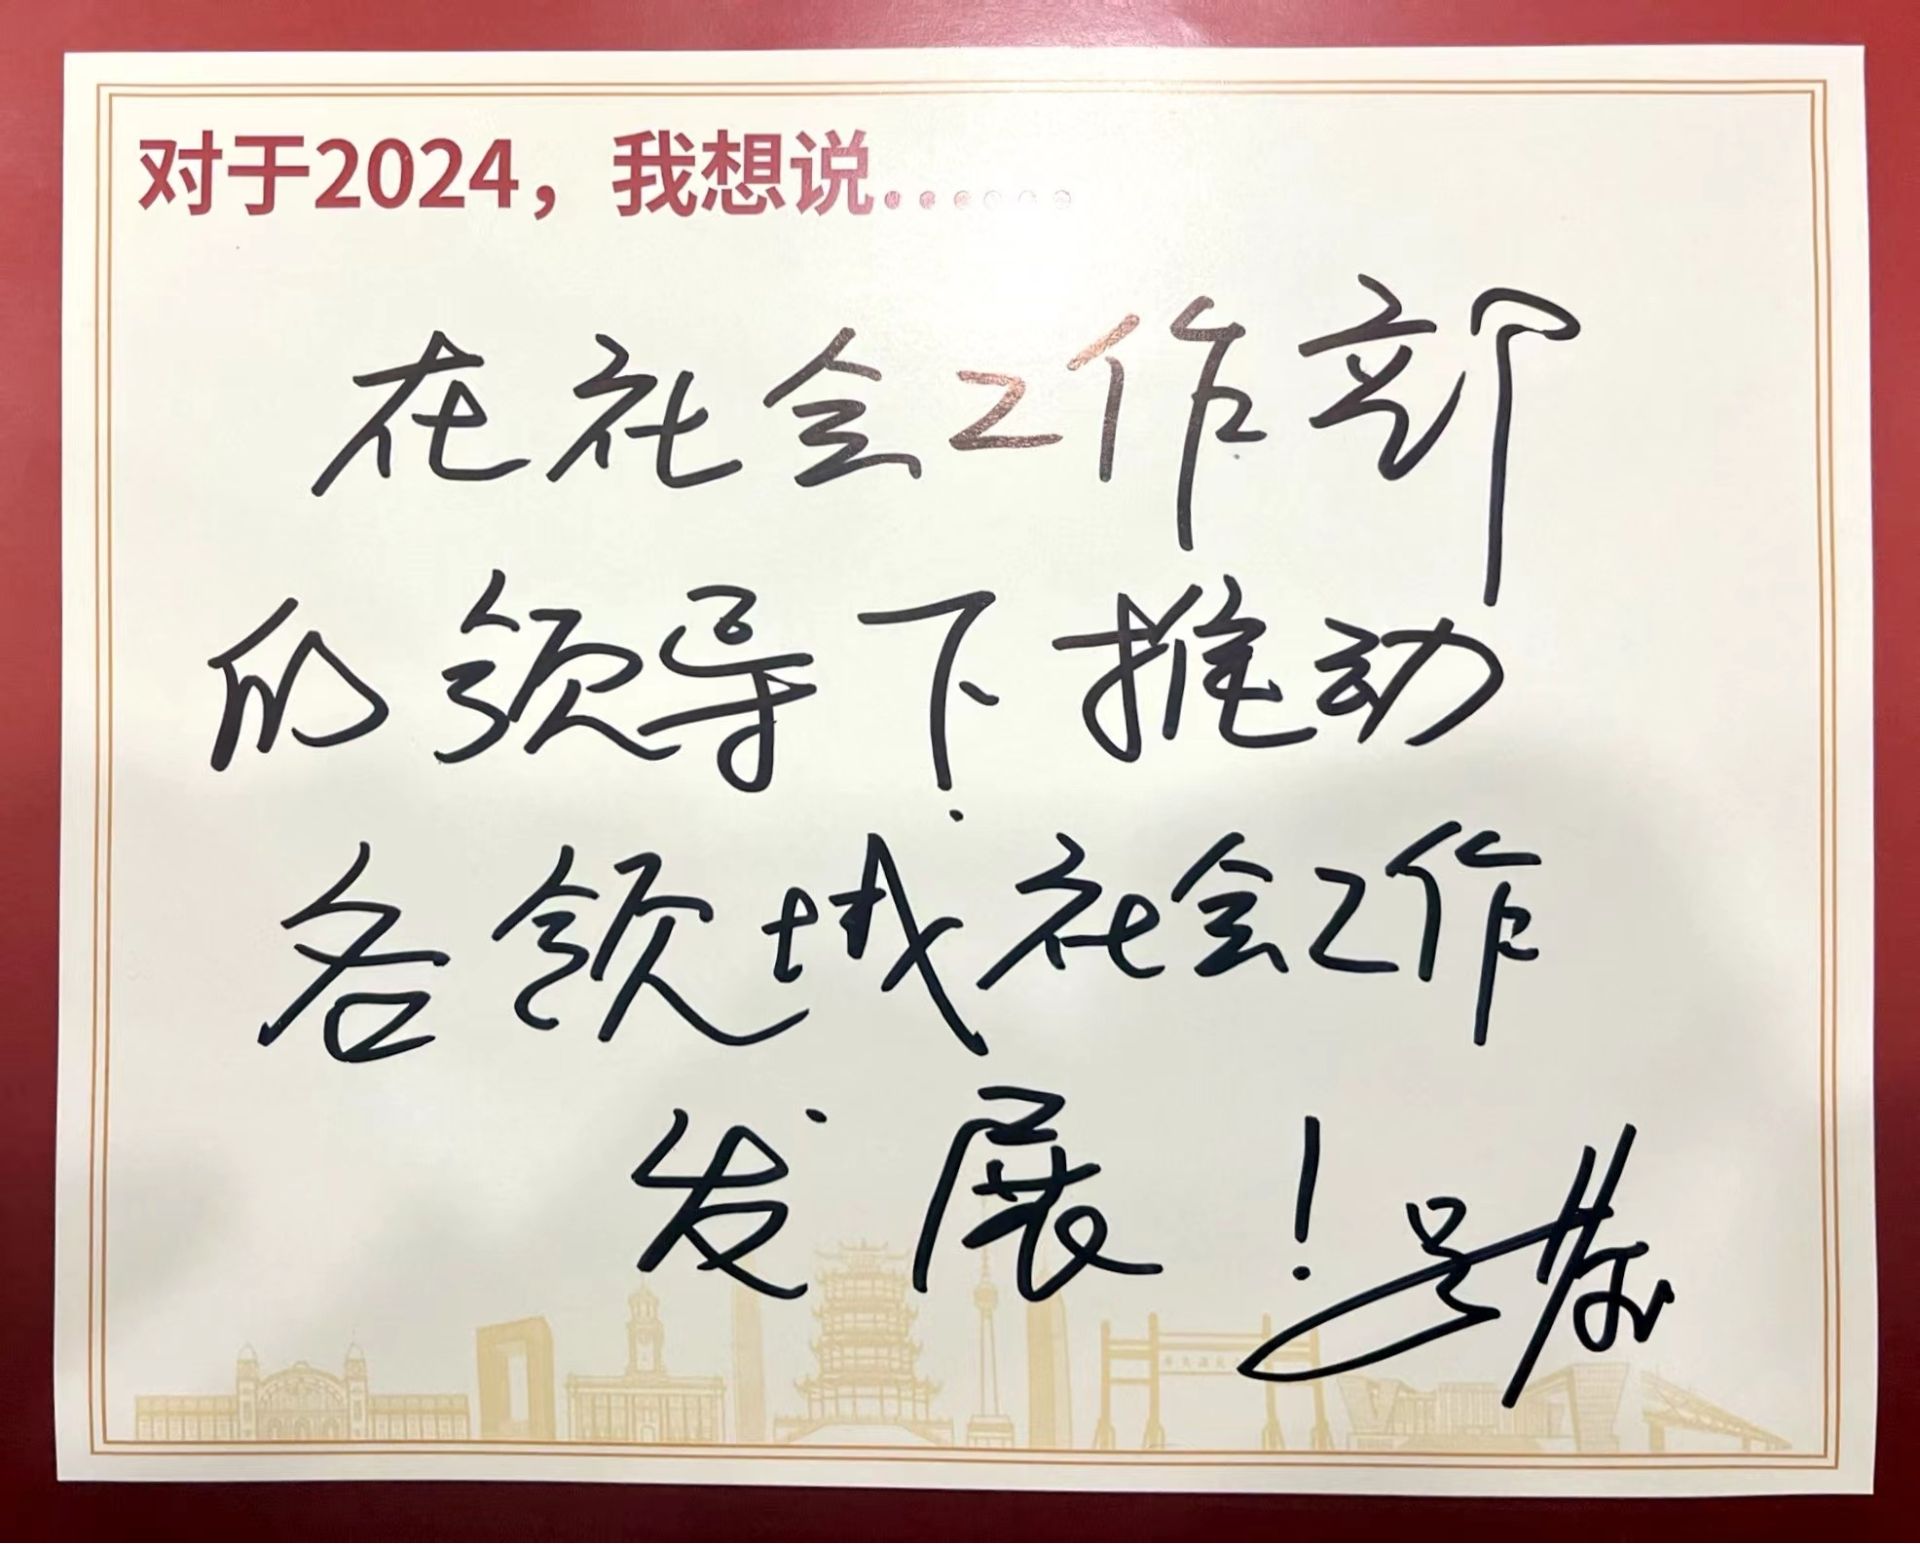 对于2024，我想说......
在社会工作部
的领导下推动
各领域社会工作
发展！